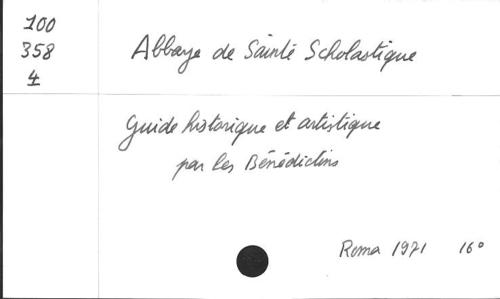 100
358
4
Abbaye de Sainte Scholastique
Guide historique et artistique
par les Bénédictins
Roma 1971 16°